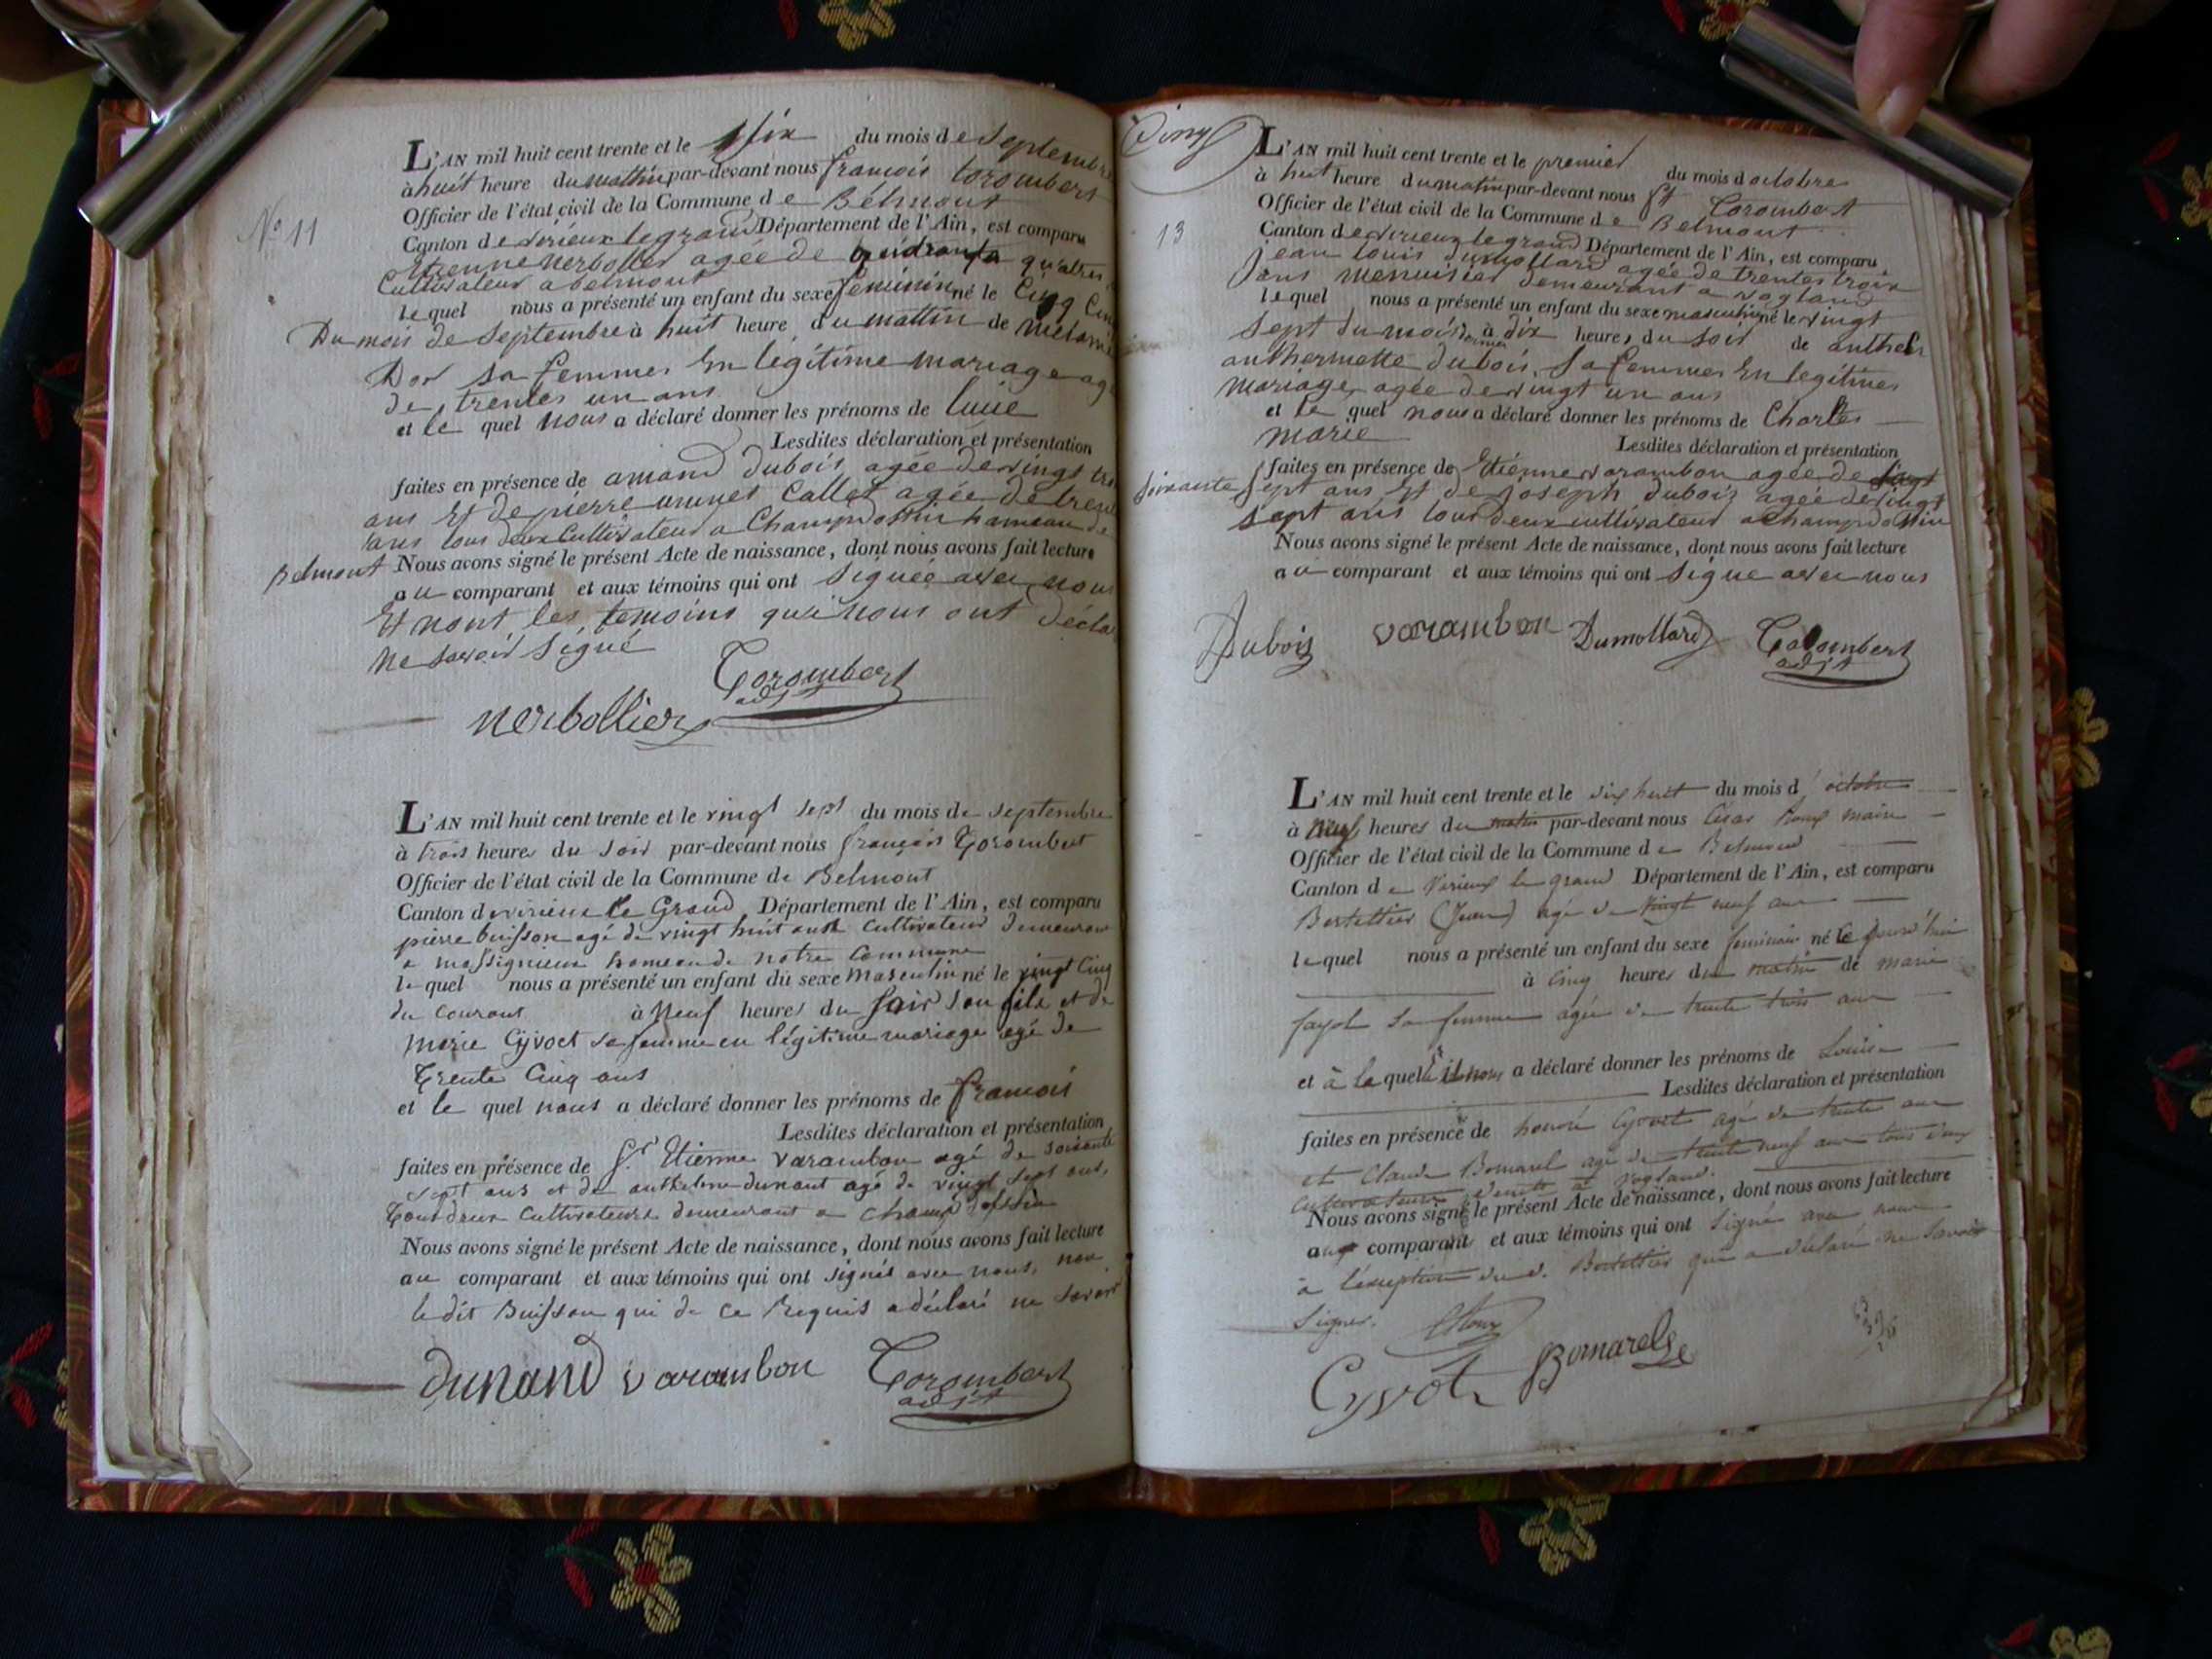 L'AN mil huit cent trente et le six du mois de Septembre
à huit heure du mattin par-devant nous francois Corombert
Officier de l'état civil de la Commune de Bélmont
N° 11
Canton de virieux le grand Département de l'Ain, est comparu
Etienne Nerbollier agée de quatres
Cultivateur a belmont
le quel nous a présenté un enfant du sexe feminin né le Cinq
Du mois de Septembre à huit heure du mattin de
Dor sa femmes En légitime mariage agé
de trentes un ans
et le quel nous a déclaré donner les prénoms de
Lesdites déclaration et présentation
faites en présence de amand dubois agée de vingt
ans Et de pierre Callet agée de
ans tous deux Cultivateur a Champdossin hameau de
Belmont Nous avons signé le présent Acte de naissance, dont nous avons fait lecture
au comparant et aux témoins qui ont Signée avec nous
Et nont les temoins qui nous ont décla
ne savoir Signé
Corombert
adjt
nerbollier
L'AN mil huit cent trente et le vingt sept du mois de septembre
à trois heures du soir par-devant nous françois Corombert
Officier de l'état civil de la Commune de Belmont
Canton de virieux le Grand Département de l'Ain, est comparu
pierre buisson agé de vingt huit ans cultivateur demeurant
a massignieu hameau de notre Commune
le quel nous a présenté un enfant du sexe masculin né le vingt Cinq
du courant à Neuf heures du soir son fils et de
marie Cyvoct sa femme en légitime mariage agé de
Trente Cinq ans
et le quel nous a déclaré donner les prénoms de francois
Lesdites déclaration et présentation
faites en présence de Sr Etienne varambon agé de soixante
sept ans et de anthelme dunant agé de vingt sept ans,
Tous deux cultivateurs demeurant a champ dossin
Nous avons signé le présent Acte de naissance, dont nous avons fait lecture
au comparant et aux témoins qui ont signés avec nous, non
ledit Buisson qui de ce Requis a déclaré ne savoir
dunand varambon Corombert
adjt
L'AN mil huit cent trente et le premier du mois d octobre
à huit heure du matin par-devant nous Corombert
Officier de l'état civil de la Commune de Belmont
13
Canton de virieux le grand Département de l'Ain, est comparu
jean louis dumollard agée de trentes trois
ans menuisier demeurant a vogland
le quel nous a présenté un enfant du sexe masculin né le vingt
sept du mois dernier à dix heures du soir de
anthermette dubois, Sa femmes En legitimes
mariages agée de vingt un ans
et le quel nous a déclaré donner les prénoms de Charles
marie
Lesdites déclaration et présentation
faites en présence de Etienne varambon agée de
soixante sept ans Et de joseph dubois agée de vingt
sept ans tour deux cultivateur a champdossin
Nous avons signé le présent Acte de naissance, dont nous avons fait lecture
au comparant et aux témoins qui ont signe avec nous
Dubois varambon Dumollard Corombert
adjt
L'AN mil huit cent trente et le dix huit du mois d'octobre
à neuf heures du matin par-devant nous César Roux maire
Officier de l'état civil de la Commune de Belmont
Canton de Virieux le grand Département de l'Ain, est comparu
Bertettier (Jean) agé de vingt neuf ans
le quel nous a présenté un enfant du sexe feminin né le jourd'hui
à cinq heures du matin de marie
fayol sa femme agée de trente trois ans
et à la quelle il nous a déclaré donner les prénoms de Louise
Lesdites déclaration et présentation
faites en présence de honoré Cyvoct agé de trente ans
et Claude Bornarel agé de trente neuf ans tous deux
cultivateurs demt à Vogland.
Nous avons signé le présent Acte de naissance, dont nous avons fait lecture
aux comparants et aux témoins qui ont signé avec nous
à l'exception dud. Bertettier qui a déclaré ne savoir
signer. CRoux
Cyvot Bornarel